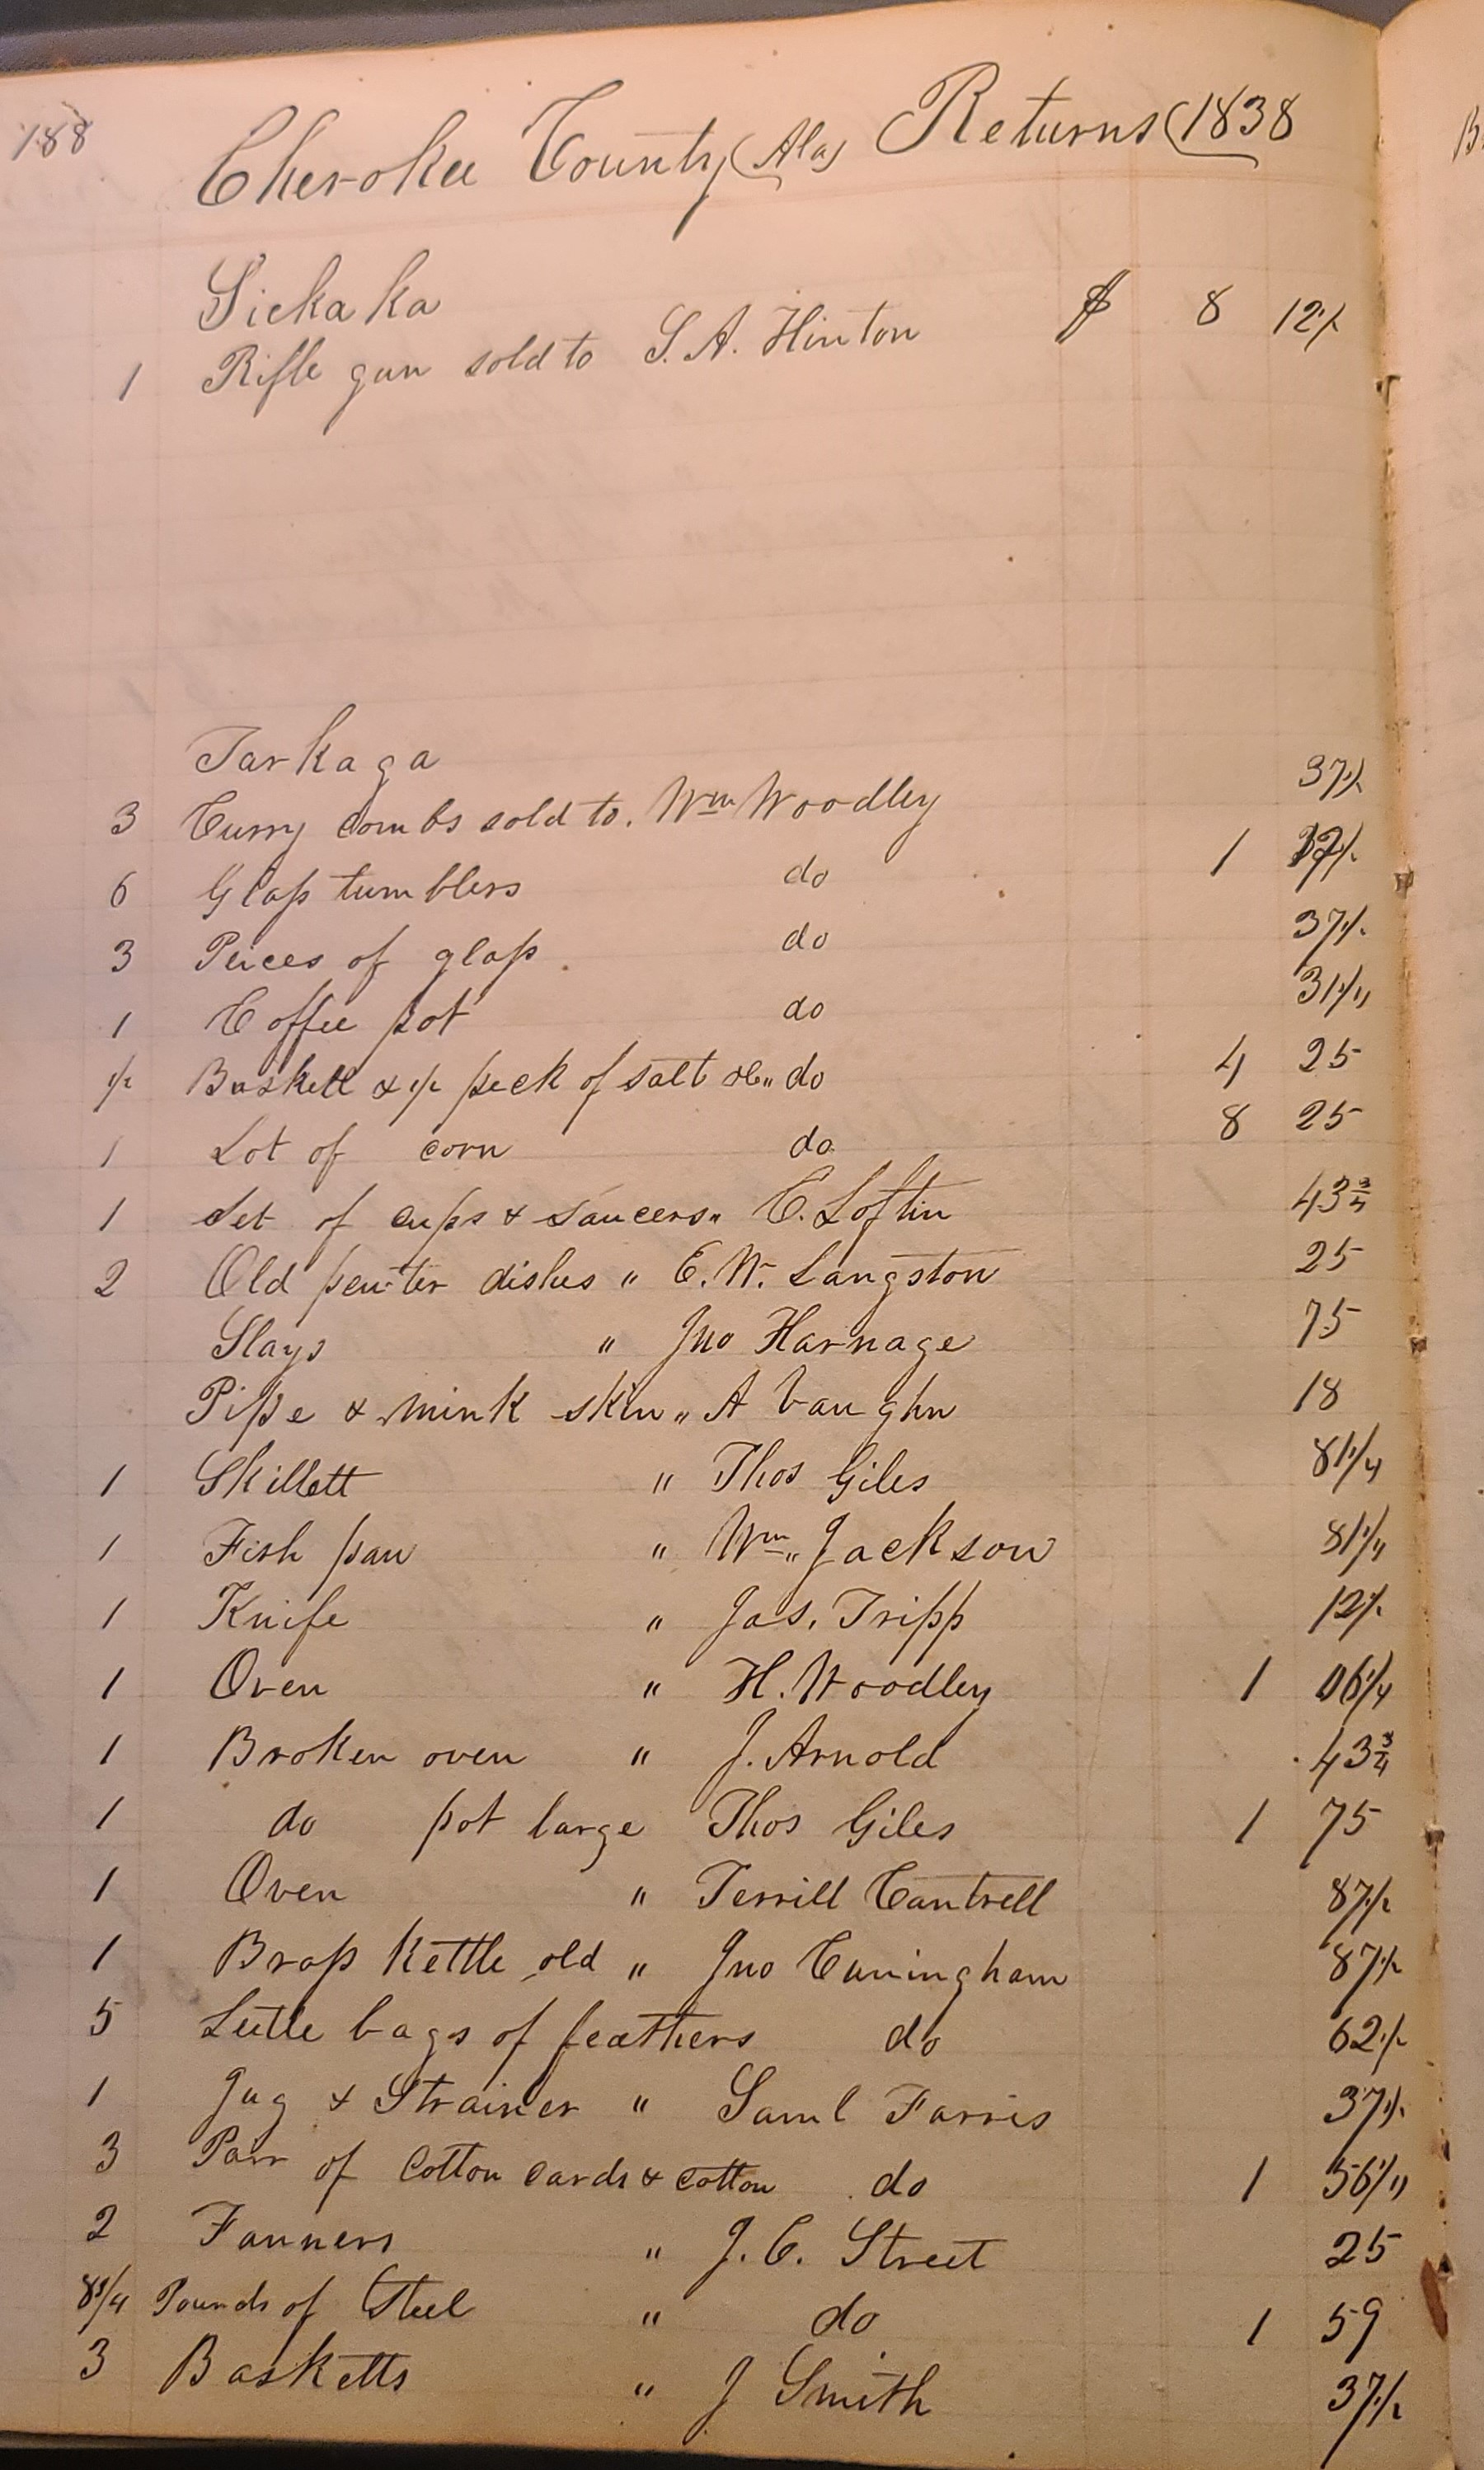 188
Cherokee County (Ala) Returns (1838
Sickaka
1 Rifle gun sold to S. A. Hinton $ 8 12½
Tarkaga
3 Curry combs sold to. Wm Woodley 37½
6 Glass tumblers do 1
3 Peices of glass. do 37½
1 Coffee pot do 31¼
½ Baskett & ½ peck of salt &c " do 4 25
1 Lot of corn do 8 25
1 Set of cups & saucers " C. Loftin 43¾
2 Old pewter dishes " E. W. Langston 25
Slays " Jno Harnage 75
Pipe & mink skin " A Vaughn 18
1 Skillett " Thos Giles 81¼
1 Fish pan " Wm " Jackson 81¼
1 Knife " Jas. Tripp 12½
1 Oven " H. Woodley 1 06¼
1 Broken oven " J. Arnold 43¾
1 do pot large Thos Giles 1 75
1 Oven " Terrill Cantrell 87½
1 Brass Kettle old " Jno Cuningham 87½
5 Little bags of feathers do 62½
1 Jug & Strainer " Saml Farris 37½
3 Pair of Cotton Cards & cotton do 1 56¼
2 Fanners " J. C. Street 25
8¾ Pounds of Steel " do 1 59
3 Basketts " J Smith 37½